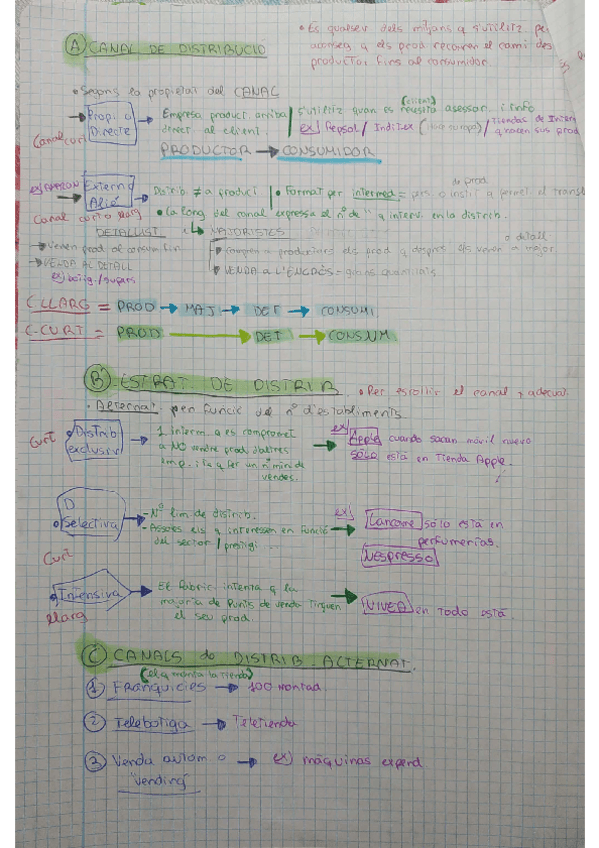 A CANAL DE DISTRIBUCIÓ
• És qualsev dels mitjans q s'utilitz. pe
aconseg q els prod recorren el camí des
productor fins al consumidor.
• Segons la propietat del CANAL
Propi o
Directe
Canal curt
Empresa product. arriba
direct. al client.
(client)
s'utilitz quan es necesita assesor. i info
ex) Repsol / Inditex / Tiendas de
PRODUCTOR → CONSUMIDOR
Externo
Aliè
Canal curt o llarg
Distrib ≠ a product
• Format per intermed = pers. o instit q permet el
de prod
• La long del canal expressa el nº de " q interv. en la distrib.
DETALLIST
↳ MAJORISTES
→ venen prod al consum fin
→ VENDA AL DETALL
→ compren a productors els prod q després els venen a major.
o detall
→ VENDA a L'ENGRÒS = grans quantitats
C LLARG = PROD → MAJ → DET → CONSUMI
C-CURT = PROD → DET → CONSUM
B ESTRAT DE DISTRIB
• Per escollir el canal + adequat
• Alternat. pen funció del nº d'establiments
Curt
• Distrib
exclusiv
1 interm. q es compromet
a NO vendre prod. d'altres
emp. i la q fer un nº mini de
vendes.
ex)
Apple cuando sacan móvil nuevo
SÓLO está en Tienda Apple.
D
• Selectiva
Curt
- Nº lim de distrib.
- Assoleix els q interessen en funció
del sector / prestigi ...
ex)
Lancome sólo está en
perfumerías.
NESPRESSO
• Intensiva
llarg
El fabric. intenta q la
majoria de Punts de venda Tinguen
el seu prod.
NIVEA en TODO ESTÁ
C CANALS de DISTRIB. ALTERNAT.
(el q monta la tienda)
1 FRANQUICIES → 100 Montad.
2 Telebotiga → Teletienda
3 Venda autom o → ex) máquinas expend
"vending"